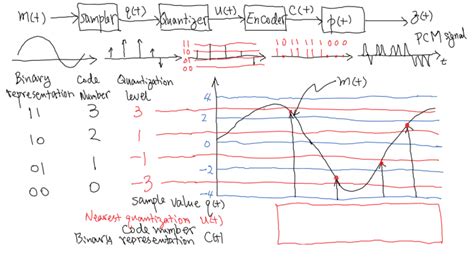 m(t) → Sampler q(t) → Quantizer u(t) → Encoder C(t) → p(t) → z(t)
PCM signal
1 0 1 1 1 1 0 0 0
t
Binary representation Code Number Quantization level
m(t)
11 3 3
10 2 1
01 1 -1
00 0 -3
4
2
0
-2
-4
Sample value q(t)
Nearest quantization u(t)
Code number
Binary representation C(t)